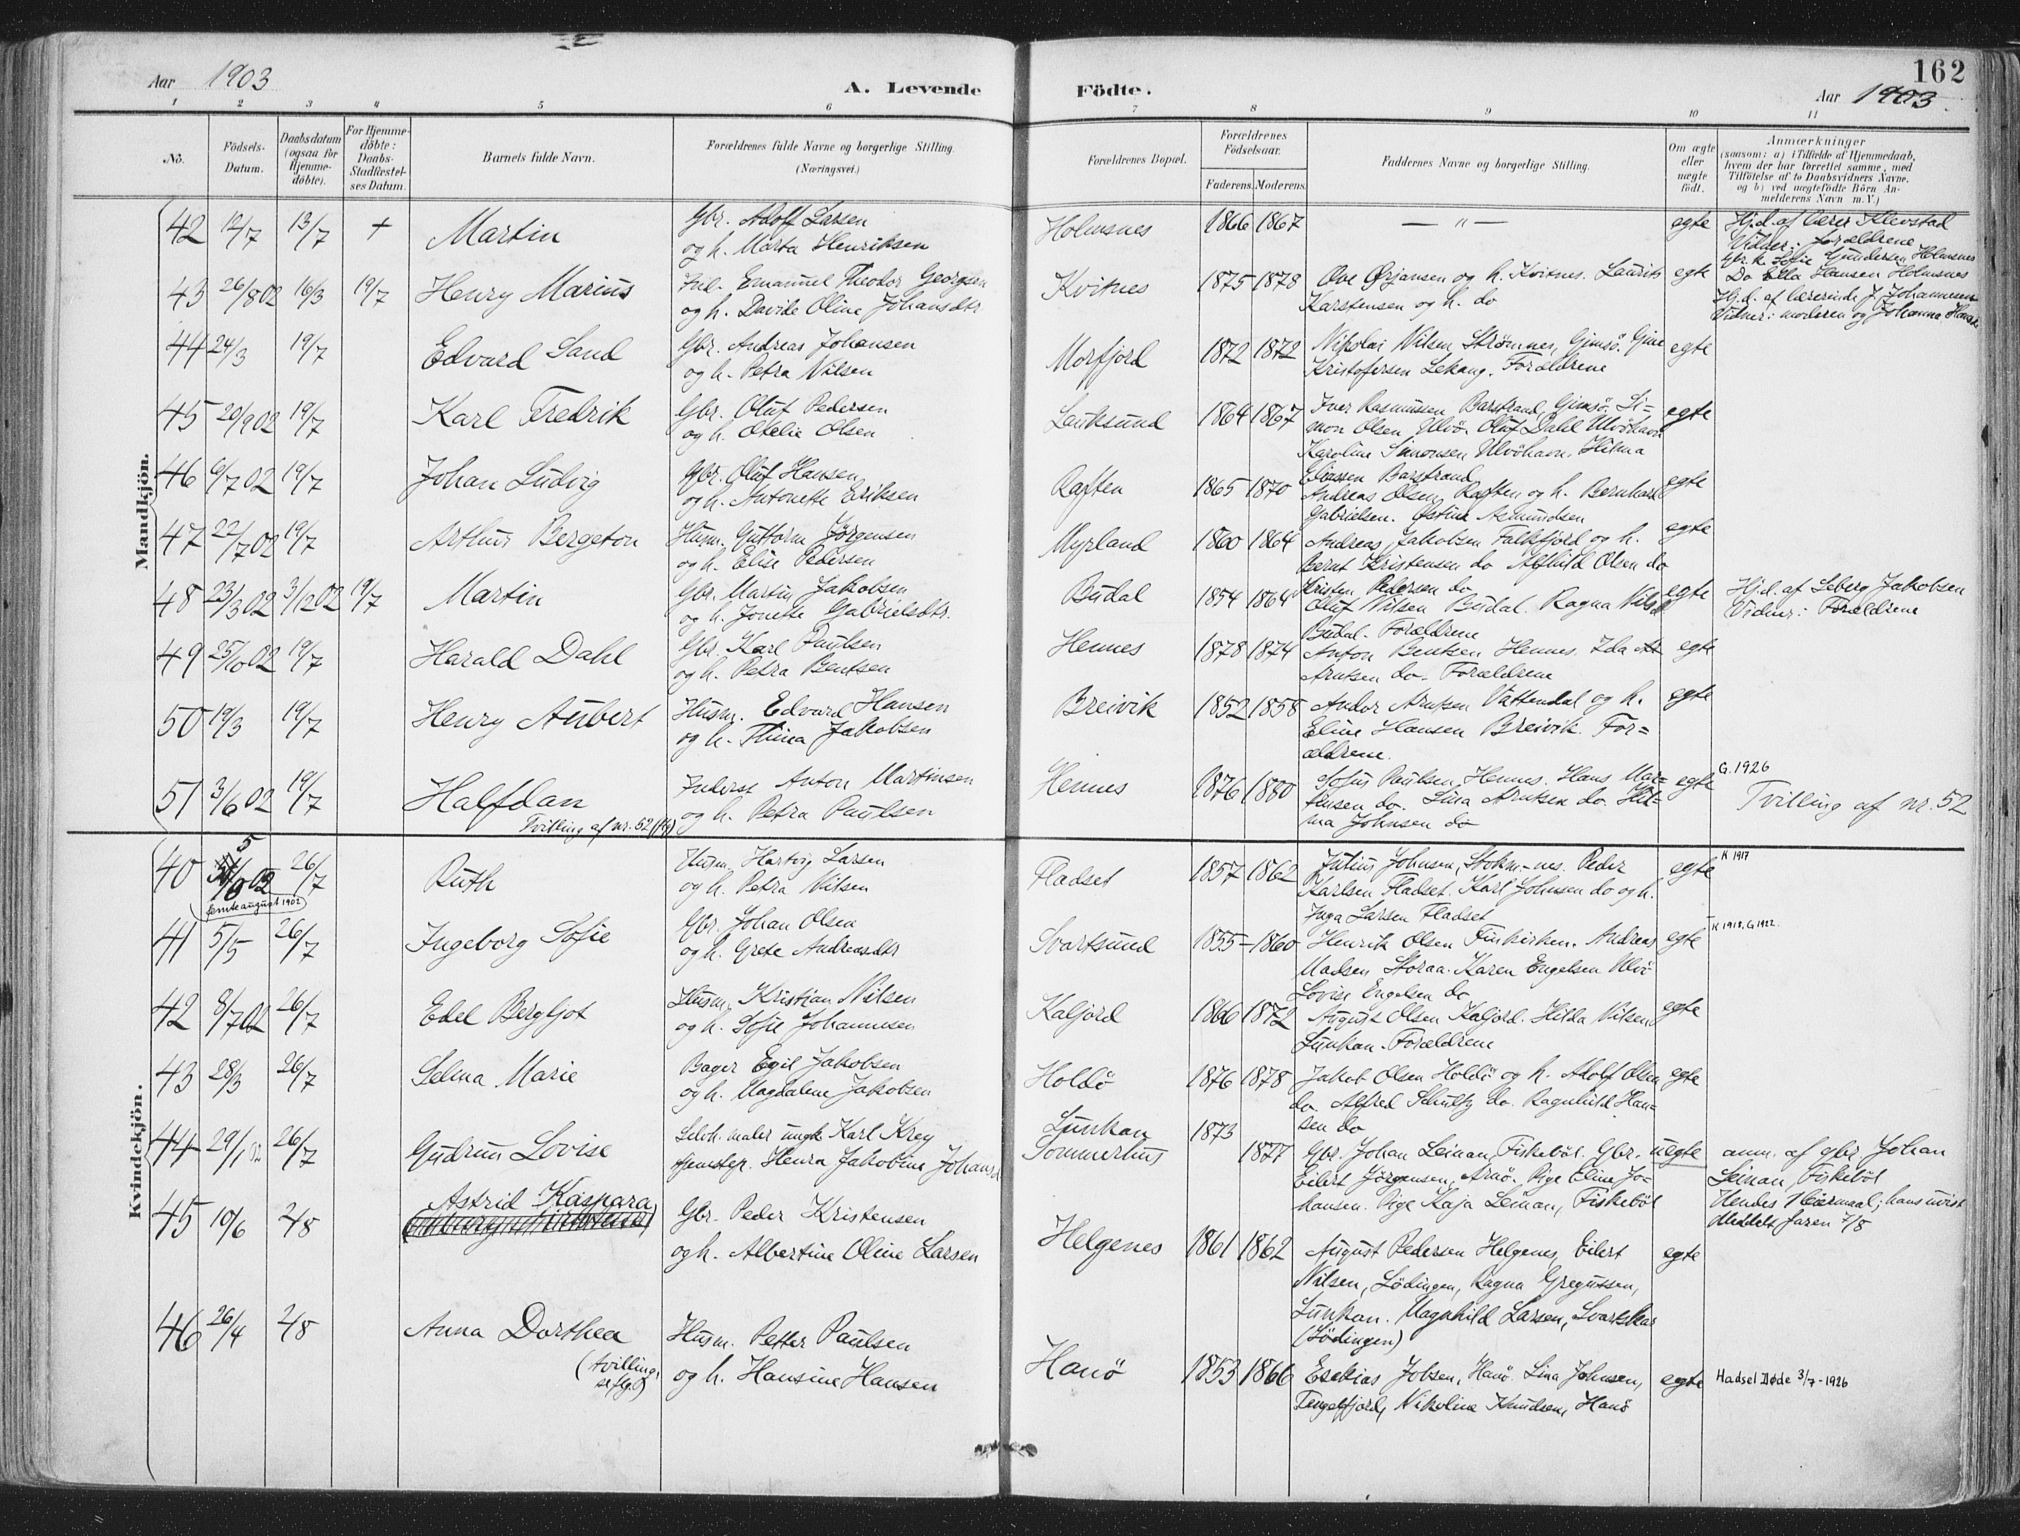 162
Aar 1903
A. Levende
Födte.
Aar 1903
1 2 3 4 5 6 7 8 9 10 11
No.
Födsels-Datum.
Daabsdatum (ogsaa för Hjemmedöbte).
For Hjemmedöbte: Daabs-Stadfæstelses Datum.
Barnets fulde Navn.
Forældrenes fulde Navne og borgerlige Stilling. (Næringsvei.)
Forældrenes Bopæl.
Forældrenes Födselsaar.
Faderens. Moderens.
Faddernes Navne og borgerlige Stilling.
Om ægte eller uægte födt.
Anmærkninger
(saasom: a) i Tilfælde af Hjemmedaab,
hvem der har forrettet samme, med
Tilföielse af to Daabsvidners Navne,
og b) ved uægtefödte Börn An-
melderens Navn m. V.)
Mandkjön.
42 12/7 13/7 + Martin
Gbr. Adolf Larsen
og h. Marta Henriksen
Holmsnes 1866 1867 — " — egte
Hj.d. af lærer Klevstad
Vidner: forældrene
Gbr. k. Sofie Gundersen Holmsnes
Do Ella Hansen Holmsnes
43 26/8 02 16/3 19/7 Henry Marius
Emanuel Theodor Georgsen
og h. Davide Oline Johansdtr
Kvitnes 1875 1878
Ove Ørjansen og h. Kvitnes. Laurits
Karstensen og h. do
egte
Hj.d. af lærerinde J. Johannesen
Vidner: moderen og Johanna
44 24/3 19/7 Edvard Sand
Gbr. Andreas Johansen
og h. Petra Nilsen
Morfjord 1872 1872
Nikolai Nilsen Strömnes, Gimsö.
Kristofersen Lekang. Forældrene
egte
45 20/9 02 19/7 Karl Fredrik
Gbr. Oluf Pedersen
og h. Otelie Olsen
Lauksund 1864 1867
Iver Rasmussen Barstrand, Gimsö. Si=
mon Olsen Ulvö. Oluf Dahl Ulvöhavn
Karoline Simonsen Ulvöhavn, Hilma
Eliassen Barstrand
egte
46 6/7 02 19/7 Johan Ludvig
Gbr. Oluf Hansen
og h. Antonette Eriksen
Raften 1865 1870
Andreas Olsen, Raften og h. Bernhard
Gabrielsen. Østine Asmundsen
egte
47 22/7 02 19/7 Arthur Bergeton
Husm. Guttorm Jörgensen
og h. Elise Pedersen
Myrland 1860 1864
Andreas Jakobsen Falkfjord og h.
Bernt Kristensen do Alfhild Olsen do
Kristen Pedersen do
egte
48 23/3 02 3/12 02 19/7 Martin
Gbr. Martin Jakobsen
og h. Jonette Gabrielsdtr.
Budal 1854 1864
Oluf Nilsen Budal. Ragna Nilsen
Budal. Forældrene
egte
Hj.d. af Seberg Jakobsen
Vidner: Forældrene
49 25/10 02 19/7 Harald Dahl
Gbr. Karl Paulsen
og h. Petra Bentsen
Hennes 1878 1874
Anton Bentsen Hennes. Ida
Arntsen do. Forældrene
egte
50 19/3 19/7 Henry Aubert
Husm. Edvard Hansen
og h. Thina Jakobsen
Breivik 1852 1858
Andor Arntsen Vattendal og h.
Eline Hansen Breivik. For=
ældrene.
egte
51 3/6 02 19/7 Halfdan
Tvilling af nr. 52
Inderst Anton Martinsen
og h. Petra Paulsen
Hennes 1876 1880
Sofus Paulsen, Hennes. Hans Mar=
tinsen do. Lina Arntsen do. Hil=
ma Johnsen do
egte
G. 1926
Tvilling af nr. 52
Kvindekjön.
40 5 02 26/7 Ruth
(femte august 1902)
Husm. Hartvig Larsen
og h. Petra Nilsen
Fladset 1857 1862
Julius Johnsen, Stokm-nes. Peder
Karlsen Fladset. Karl Johnsen do og h.
Inga Larsen Fladset
egte
K 1917
41 5/5 26/7 Ingeborg Sofie
Gbr. Johan Olsen
og h. Grete Andreasdtr
Svartsund 1855 - 1860
Henrik Olsen Finkirken. Andreas
Madsen Storaa. Karen Engelsen Ulvö
Lovise Engelsen do
egte
K 1918, G 1922.
42 8/7 02 26/7 Edel Bergljot
Husm. Kristian Nilsen
og h. Sofie Johannesen
Kaljord 1866 1872
August Olsen Kaljord. Hilda Nilsen
Lunkan. Forældrene
egte
43 28/3 26/7 Selma Marie
Bager Egil Jakobsen
og h. Magdalene Jakobsen
Holdö 1876 1878
Jakob Olsen Holdö og h. Adolf Olsen
do. Alfred Schultz do. Ragnhild Han=
sen do
egte
44 29/1 02 26/7 Gudrun Lovise
maler ungk. Karl Krey
tjenestep. Henra Jakobine
Lunkan 1873
Sommerhus 1877
Gbr. Johan Leinan, Fiskeböl. Gbr.
Eilert Jörgensen, Arnö. Pige Eline Jo-
hansen. Pige Kaja Leinan, Fiskeböl
uegte
anm. af gbr Johan
Leinan, Fiskeböl
Hendes 1ste leiermaal; hans uvist
Meddelt faren 7/8
45 10/6 2/8 Astrid Kaspara
Gbr. Peder Kristensen
og h. Albertine Oline Larsen
Helgenes 1861 1862
August Pedersen Helgenes, Eilert
Nilsen, Lödingen, Ragna Gregussen,
Lunkan. Magnhild Larsen, Svartskar
(Lödingen)
egte
46 26/4 2/8 Anna Dorthea
(tvilling,
se flg.)
Husm. Petter Paulsen
og h. Hansine Hansen
Hanö 1853 1866
Esekias Jobsen, Hanö. Lina Johnsen,
Tengelfjord, Nikoline Knudsen, Hanö
egte
Hadsel Døde 3/7-1926